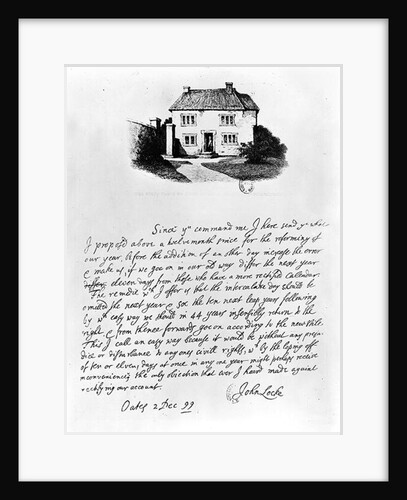 Since yu command me I here send yu what
I propos'd above a twelve month since for the reforming of
our year, before the addition of an other day increase the error
& make us, if we goe on in our old way differ the next year
eleven days from those who have a more rectified Calendar
The remedie wch I offer is that the intercalar day should be
omitted the next year & soe the ten next leap years following
by wch easy way we should in 44 years insensibly return to the
right & from thence forwards goe on according to the new stile.
This I call an easy way because it would be without any preju
dice or disturbance to any ones civill rights, wch by the loping off
of ten or eleven days at once in any one year might perhaps receive
inconvenience, the only objection that ever I heard made against
rectifying our account.
John Locke
Oates 2 Dec 99